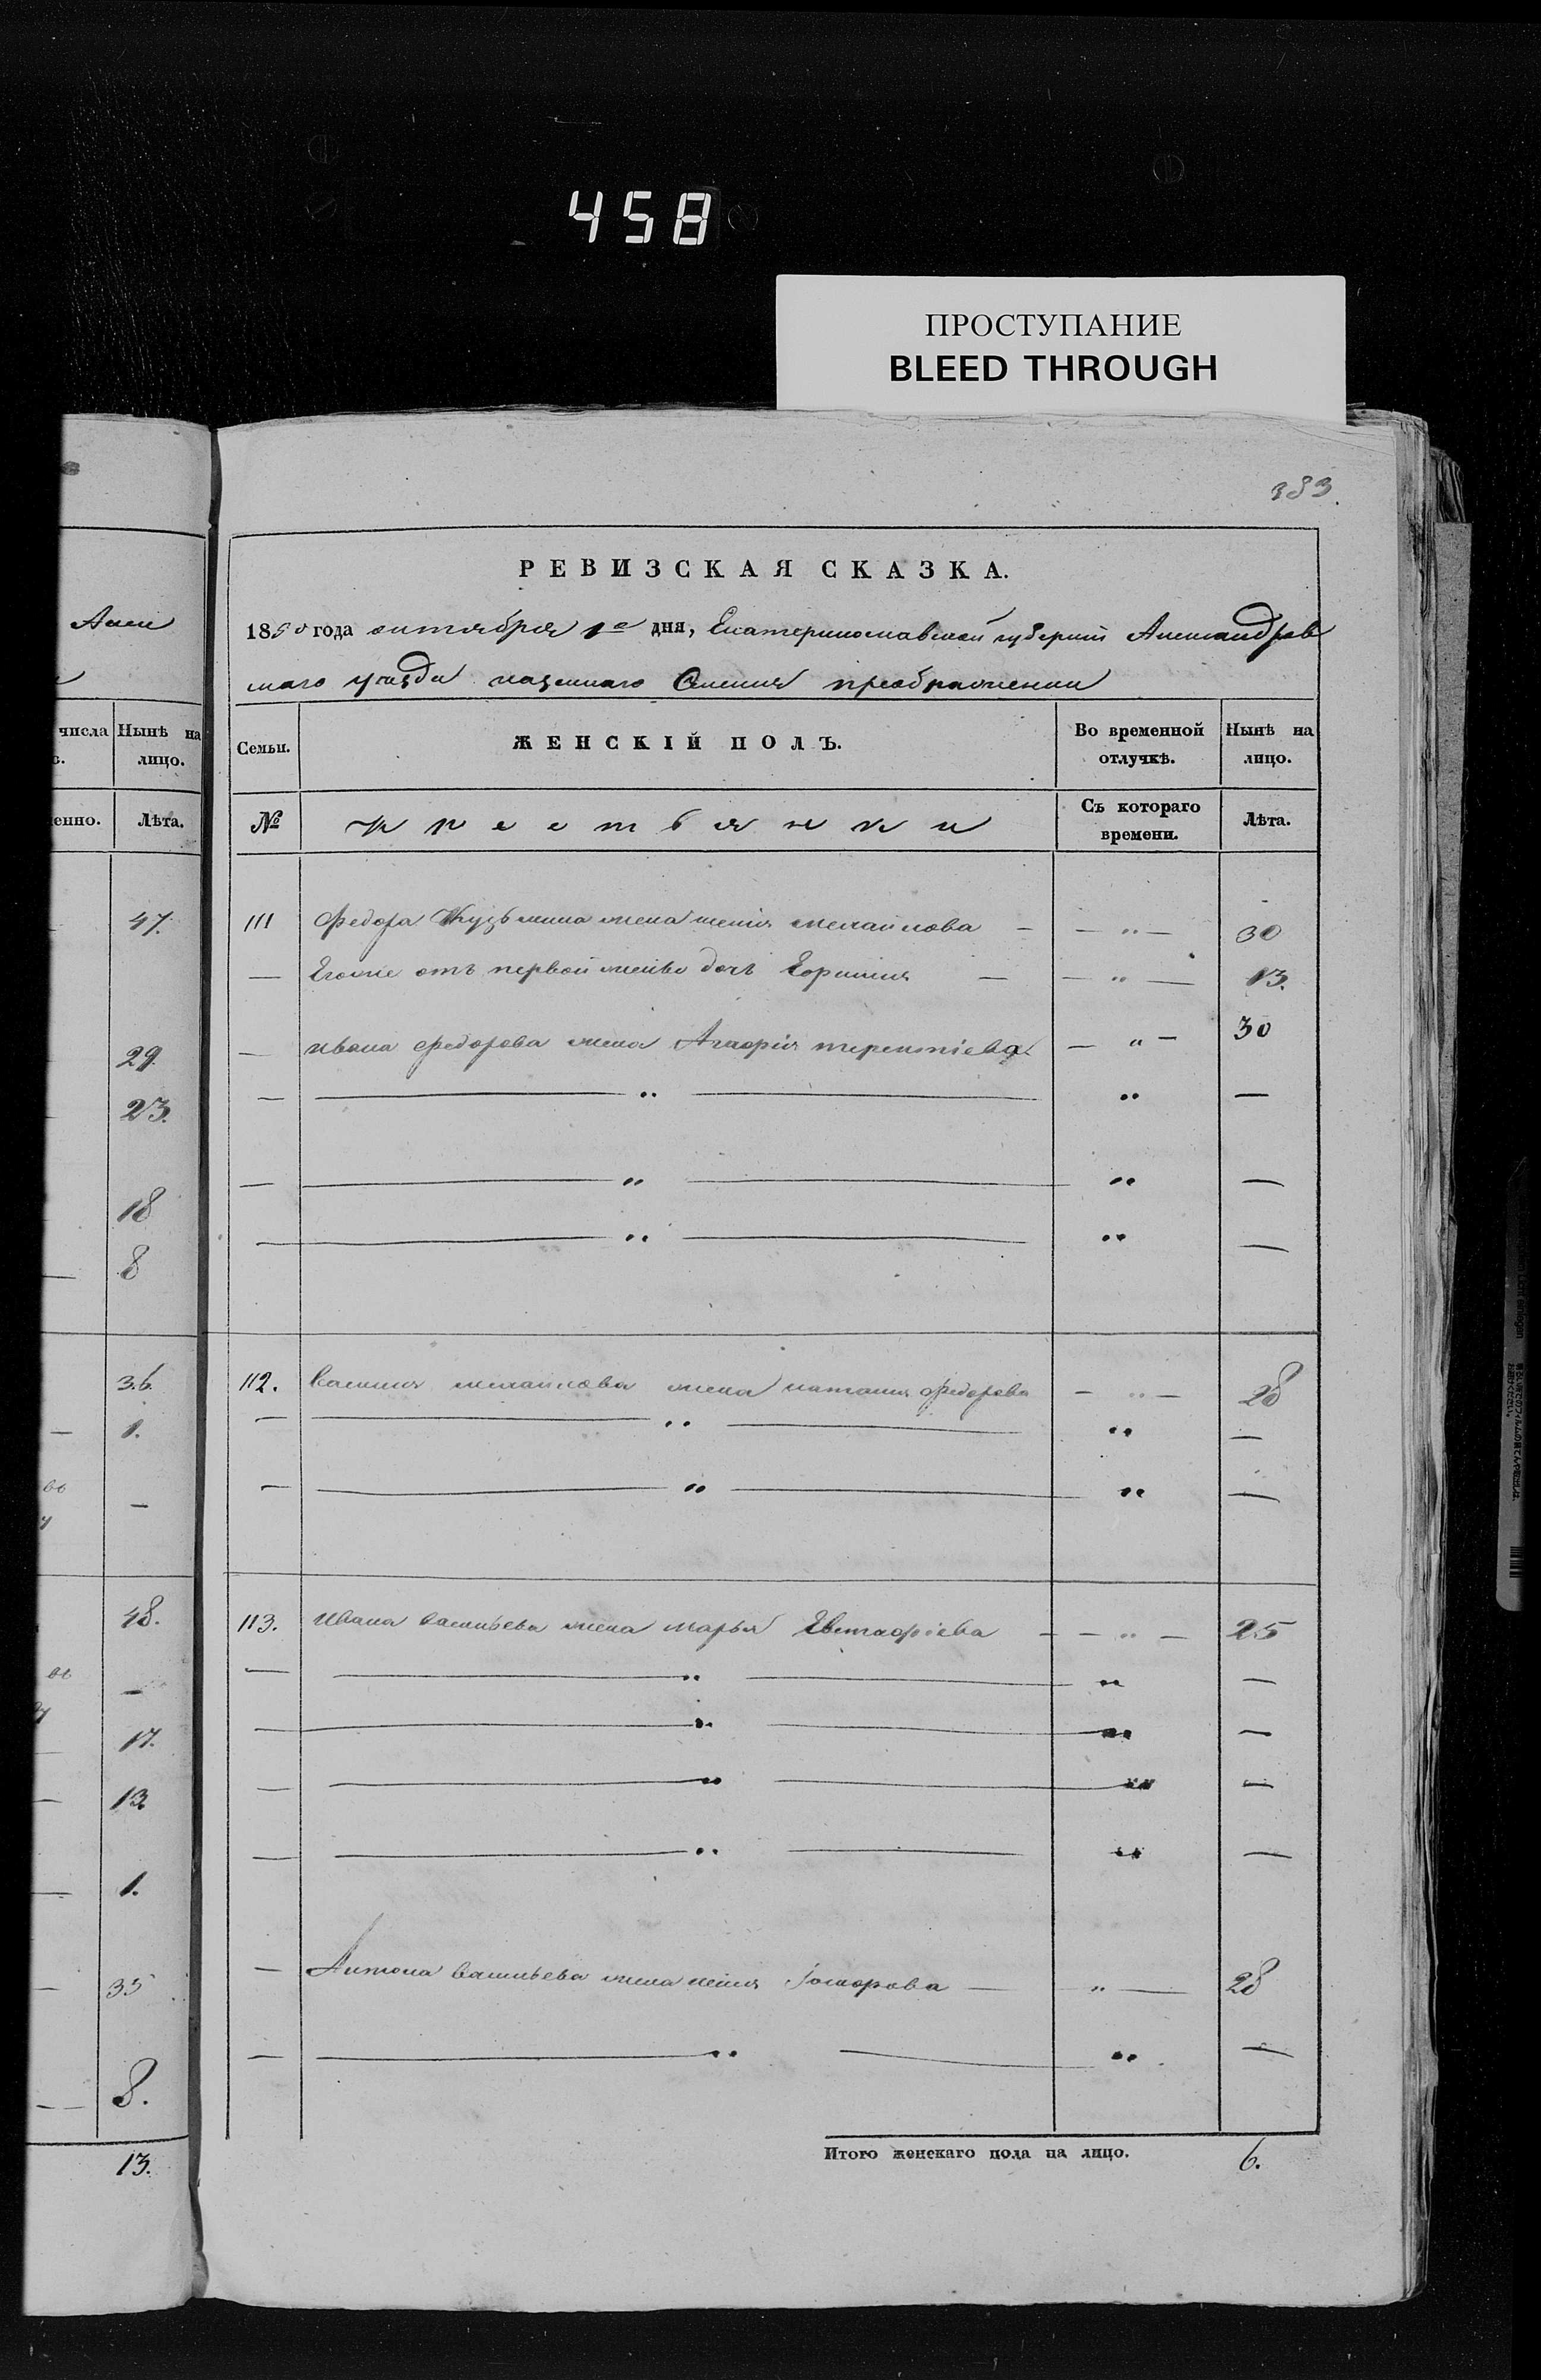 458
ПРОСТУПАНИЕ
BLEED THROUGH
383.
РЕВИЗСКАЯ СКАЗКА.
1850 года октября 1го дня, Екатеринославской губернии Александров
скаго уезда казеннаго Селения преображенки
числа
Нынѣ на
лицо.
Семьи.
ЖЕНСКІЙ ПОЛЪ.
Во временной
отлучкѣ.
Нынѣ на
лицо.
енно.
Лѣта.
№
Крестьянки
Съ котораго
времени.
Лѣта.
47.
29.
23.
18
8
36.
1.
—
48.
—
17.
13
1.
35
8.
13.
111 Федора Кузьмина жена михайлова — „ — 30
— Егоже отъ первой жены дочь — „ — 13.
— ивана федорова жена Агафия терентіева — „ — 30
— „ „ —
— „ „ —
— „ „ —
112. василия михайлова жена наталия федорова — „ — 28
— „ „ —
— „ „ —
113. ивана васильева жена марья Евстафіева — „ — 25
— „ „ —
— „ „ —
— „ „ —
— „ „ —
— Антона васильева жена — „ — 28
— „ „ —
Итого женскаго пола на лицо. 6.